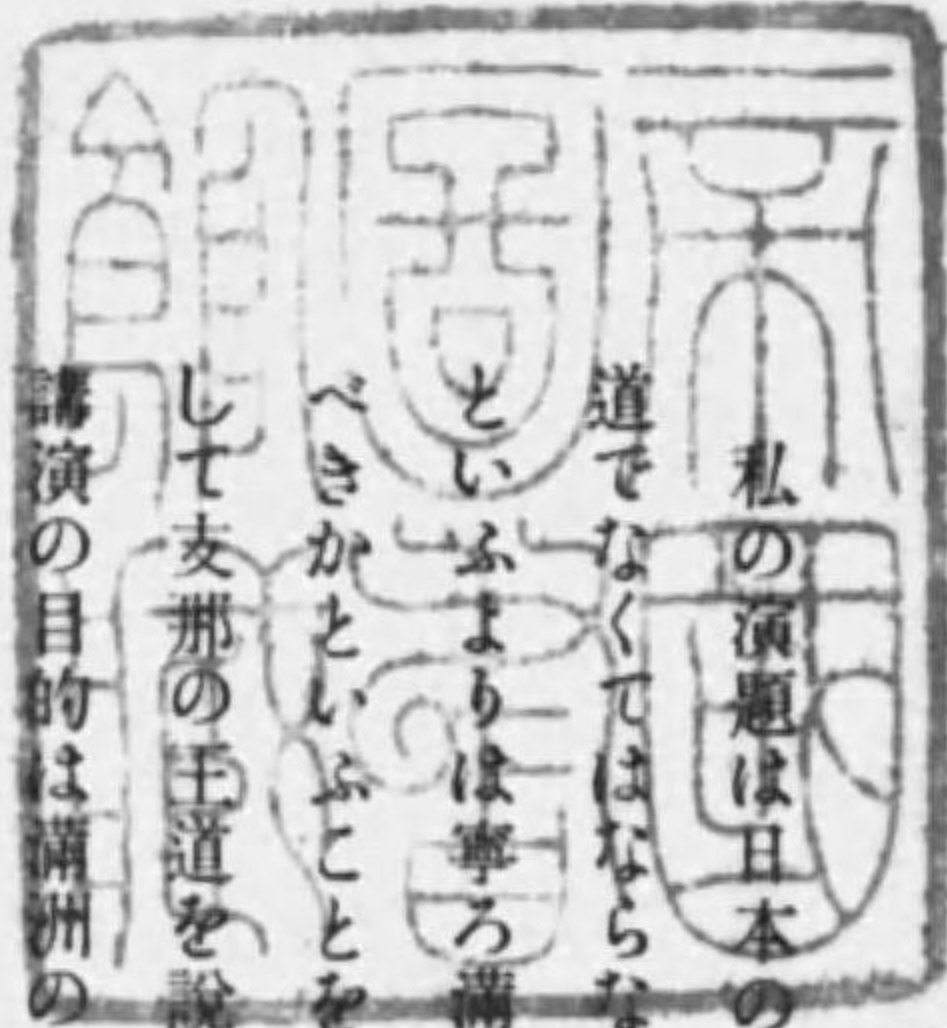 私の演題は日本の
道でなくてはならな
といふよりは寧ろ滿
べきかといふことを
して支那の王道を説
講演の目的は滿洲の